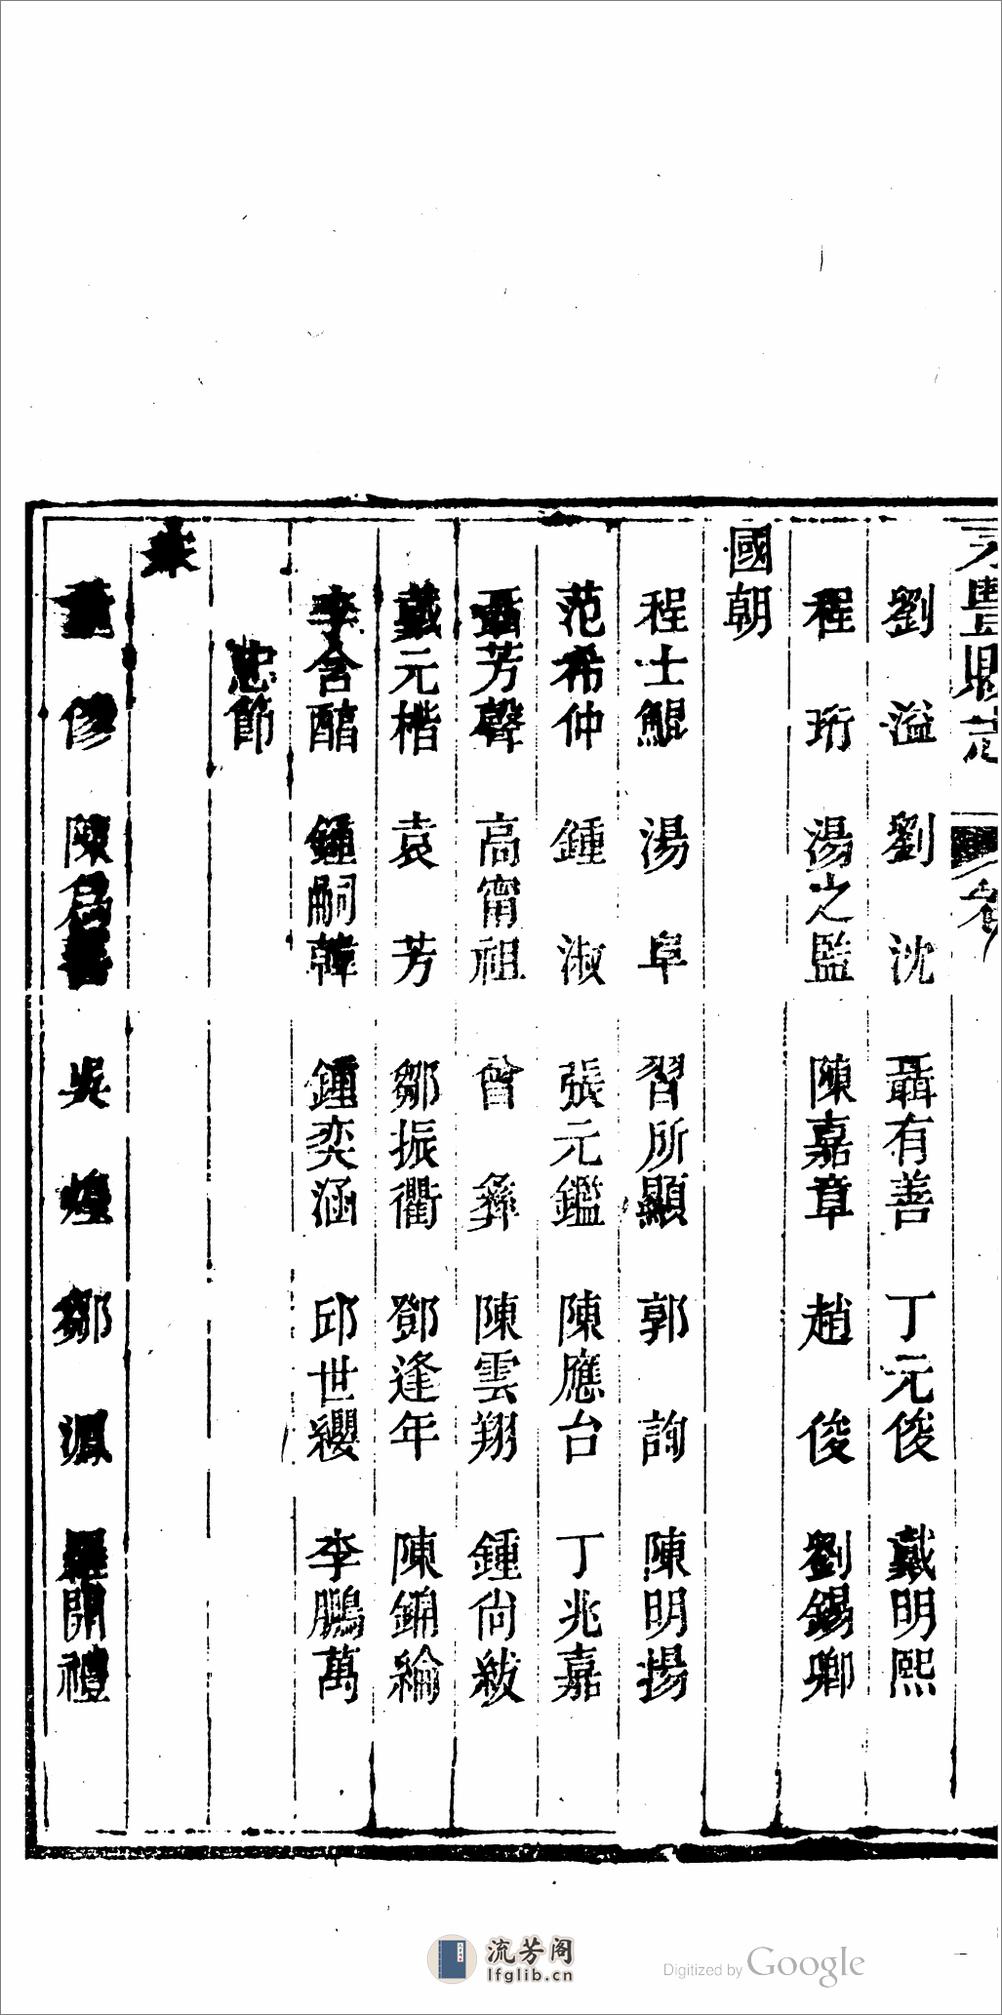 永豐縣志 卷
劉溢 劉沈 聶有善 丁元俊 戴明熙
程珩 湯之監 陳嘉章 趙俊 劉錫卿
國朝
程士鯤 湯阜 習所顯 郭詢 陳明揚
范希仲 鍾淑 張元鑑 陳應台 丁兆嘉
聶芳聲 高甯祖 曾彝 陳雲翔 鍾尙紱
戴元楷 袁芳 鄒振衢 鄧逢年 陳鏞綸
李含醅 鍾嗣韓 鍾奕涵 邱世纓 李鵬萬
忠節
宋
董修 陳 吳煌 鄒源 羅開禮
流芳阁
lfglib.cn
Digitized by Google